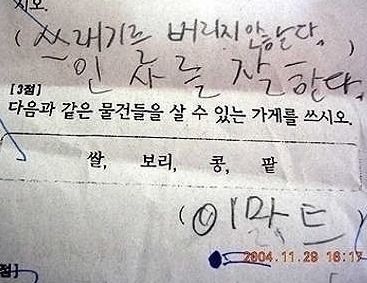 시오.
(쓰레기를 버리지 않는다.)
인사를 잘한다.
[3점]
다음과 같은 물건들을 살 수 있는 가게를 쓰시오.
쌀, 보리, 콩, 팥
(이마트)
2004.11.29 16:17
점]